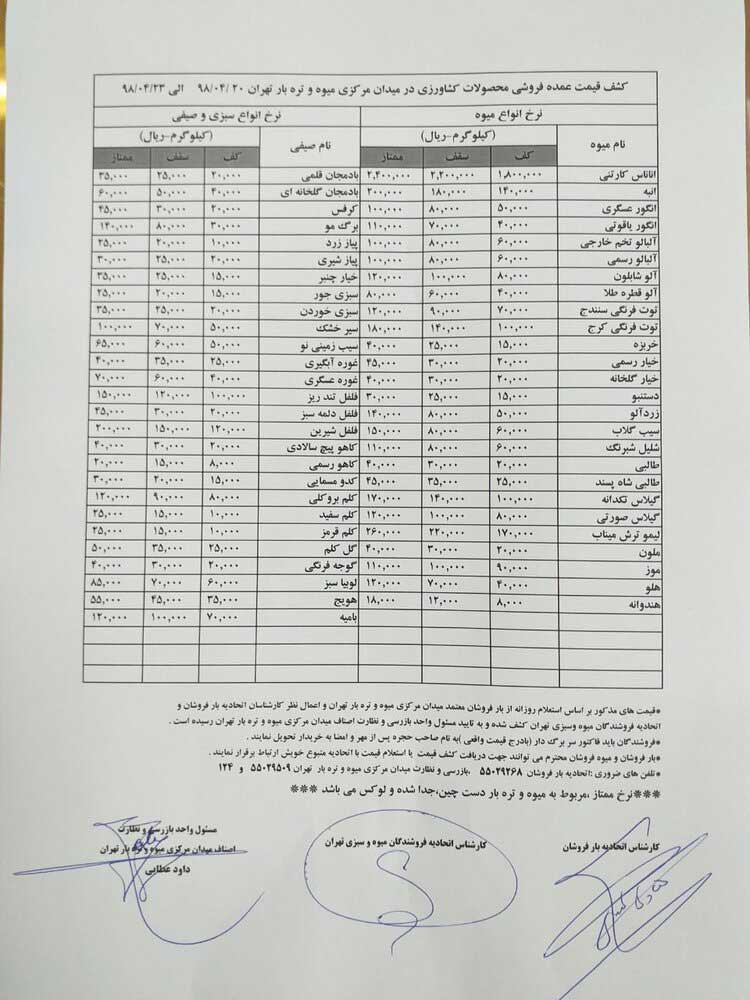 کشف قیمت عمده فروشی محصولات کشاورزی در میدان مرکزی میوه و تره بار تهران ۹۸/۰۴/۲۰ الی ۹۸/۰۴/۲۳
نرخ انواع میوه نرخ انواع سبزی و صیفی
نام میوه (کیلوگرم-ریال) نام صیفی (کیلوگرم-ریال)
کف سقف ممتاز کف سقف ممتاز
اناناس کارتنی ۱,۸۰۰,۰۰۰ ۲,۲۰۰,۰۰۰ ۲,۴۰۰,۰۰۰ بادمجان قلمی ۲۰,۰۰۰ ۲۵,۰۰۰ ۳۵,۰۰۰
انبه ۱۴۰,۰۰۰ ۱۸۰,۰۰۰ ۲۰۰,۰۰۰ بادمجان گلخانه ای ۴۰,۰۰۰ ۵۰,۰۰۰ ۶۰,۰۰۰
انگور عسگری ۵۰,۰۰۰ ۸۰,۰۰۰ ۱۰۰,۰۰۰ کرفس ۲۰,۰۰۰ ۳۰,۰۰۰ ۴۵,۰۰۰
انگور یاقوتی ۴۰,۰۰۰ ۷۰,۰۰۰ ۱۱۰,۰۰۰ برگ مو ۳۰,۰۰۰ ۸۰,۰۰۰ ۱۴۰,۰۰۰
آلبالو تخم خارجی ۶۰,۰۰۰ ۸۰,۰۰۰ ۱۰۰,۰۰۰ پیاز زرد ۱۰,۰۰۰ ۲۰,۰۰۰ ۲۵,۰۰۰
آلبالو رسمی ۶۰,۰۰۰ ۸۰,۰۰۰ ۱۰۰,۰۰۰ پیاز شیری ۲۰,۰۰۰ ۲۵,۰۰۰ ۳۰,۰۰۰
آلو شابلون ۸۰,۰۰۰ ۱۰۰,۰۰۰ ۱۲۰,۰۰۰ خیار چنبر ۱۵,۰۰۰ ۲۵,۰۰۰ ۳۵,۰۰۰
آلو قطره طلا ۴۰,۰۰۰ ۶۰,۰۰۰ ۸۰,۰۰۰ سبزی جور ۱۵,۰۰۰ ۲۰,۰۰۰ ۲۵,۰۰۰
توت فرنگی سنندج ۷۰,۰۰۰ ۹۰,۰۰۰ ۱۲۰,۰۰۰ سبزی خوردن ۲۰,۰۰۰ ۲۵,۰۰۰ ۳۵,۰۰۰
توت فرنگی کرج ۱۰۰,۰۰۰ ۱۴۰,۰۰۰ ۱۸۰,۰۰۰ سیر خشک ۵۰,۰۰۰ ۷۰,۰۰۰ ۱۰۰,۰۰۰
خربزه ۱۵,۰۰۰ ۲۵,۰۰۰ ۴۰,۰۰۰ سیب زمینی نو ۵۰,۰۰۰ ۶۰,۰۰۰ ۶۵,۰۰۰
خیار رسمی ۲۰,۰۰۰ ۳۰,۰۰۰ ۴۵,۰۰۰ غوره آبگیری ۲۵,۰۰۰ ۳۵,۰۰۰ ۴۰,۰۰۰
خیار گلخانه ۲۰,۰۰۰ ۳۰,۰۰۰ ۴۰,۰۰۰ غوره عسگری ۴۰,۰۰۰ ۶۰,۰۰۰ ۷۰,۰۰۰
دستنبو ۱۵,۰۰۰ ۲۵,۰۰۰ ۳۰,۰۰۰ فلفل تند ریز ۱۰۰,۰۰۰ ۱۲۰,۰۰۰ ۱۵۰,۰۰۰
زردآلو ۵۰,۰۰۰ ۸۰,۰۰۰ ۱۴۰,۰۰۰ فلفل دلمه سبز ۲۰,۰۰۰ ۳۰,۰۰۰ ۴۵,۰۰۰
سیب گلاب ۶۰,۰۰۰ ۸۰,۰۰۰ ۱۵۰,۰۰۰ فلفل شیرین ۱۲۰,۰۰۰ ۱۵۰,۰۰۰ ۲۰۰,۰۰۰
شلیل شبرنگ ۶۰,۰۰۰ ۸۰,۰۰۰ ۱۱۰,۰۰۰ کاهو پیچ سالادی ۲۰,۰۰۰ ۳۰,۰۰۰ ۴۰,۰۰۰
طالبی ۲۰,۰۰۰ ۳۰,۰۰۰ ۴۰,۰۰۰ کاهو رسمی ۸,۰۰۰ ۱۵,۰۰۰ ۲۰,۰۰۰
طالبی شاه پسند ۲۵,۰۰۰ ۳۵,۰۰۰ ۴۵,۰۰۰ کدو مسمایی ۱۵,۰۰۰ ۲۰,۰۰۰ ۳۰,۰۰۰
گیلاس تکدانه ۱۰۰,۰۰۰ ۱۴۰,۰۰۰ ۱۷۰,۰۰۰ کلم بروکلی ۸۰,۰۰۰ ۹۰,۰۰۰ ۱۲۰,۰۰۰
گیلاس صورتی ۸۰,۰۰۰ ۱۰۰,۰۰۰ ۱۲۰,۰۰۰ کلم سفید ۱۰,۰۰۰ ۱۵,۰۰۰ ۲۵,۰۰۰
لیمو ترش میناب ۱۷۰,۰۰۰ ۲۲۰,۰۰۰ ۲۶۰,۰۰۰ کلم قرمز ۱۰,۰۰۰ ۱۵,۰۰۰ ۲۵,۰۰۰
ملون ۲۰,۰۰۰ ۳۰,۰۰۰ ۴۰,۰۰۰ گل کلم ۲۵,۰۰۰ ۳۵,۰۰۰ ۵۰,۰۰۰
موز ۹۰,۰۰۰ ۱۰۰,۰۰۰ ۱۱۰,۰۰۰ گوجه فرنگی ۲۰,۰۰۰ ۳۰,۰۰۰ ۴۰,۰۰۰
هلو ۴۰,۰۰۰ ۷۰,۰۰۰ ۱۲۰,۰۰۰ لوبیا سبز ۶۰,۰۰۰ ۷۰,۰۰۰ ۸۵,۰۰۰
هندوانه ۸,۰۰۰ ۱۲,۰۰۰ ۱۸,۰۰۰ هویج ۳۵,۰۰۰ ۴۵,۰۰۰ ۵۵,۰۰۰
بامیه ۷۰,۰۰۰ ۱۰۰,۰۰۰ ۱۲۰,۰۰۰
*قیمت های مذکور بر اساس استعلام روزانه از بار فروشان معتمد میدان مرکزی میوه و تره بار تهران و اعمال نظر کارشناسان اتحادیه بار فروشان و
اتحادیه فروشندگان میوه وسبزی تهران کشف شده و به تایید مسئول واحد بازرسی و نظارت اصناف میدان مرکزی میوه و تره بار تهران رسیده است .
*فروشندگان باید فاکتور سر برگ دار (بادرج قیمت واقعی )به نام صاحب حجره پس از مهر و امضا به خریدار تحویل نمایند .
*بار فروشان و میوه فروشان محترم می توانند جهت دریافت کشف قیمت یا استعلام قیمت با اتحادیه متبوع خویش ارتباط برقرار نمایند .
*تلفن های ضروری :اتحادیه بار فروشان ۵۵۰۲۹۲۶۸ ,بازرسی و نظارت میدان مرکزی میوه و تره بار تهران ۵۵۰۲۹۵۰۹ و ۱۲۴
***نرخ ممتاز ،مربوط به میوه و تره بار دست چین،جدا شده و لوکس می باشد ***
کارشناس اتحادیه بار فروشان کارشناس اتحادیه فروشندگان میوه و سبزی تهران مسئول واحد بازرسی و نظارت
اصناف میدان مرکزی میوه و تره بار تهران
داود عطایی